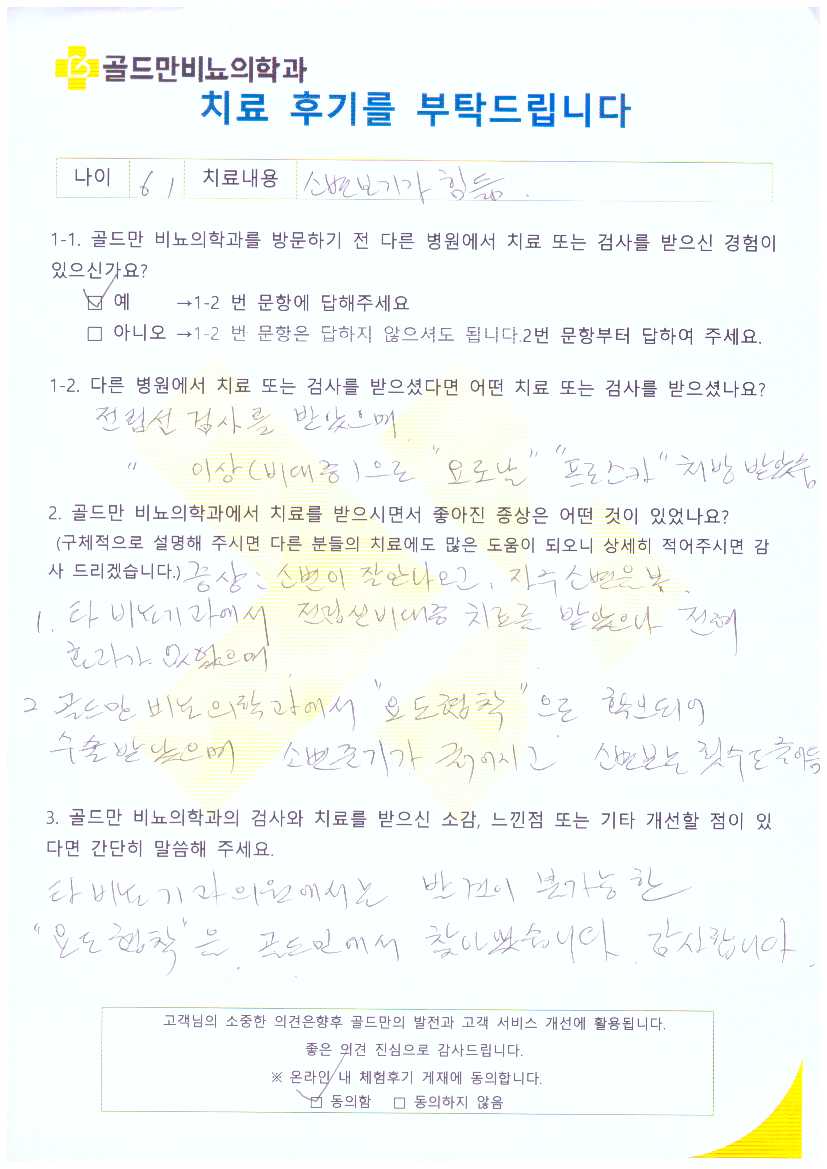 골드만비뇨의학과
치료 후기를 부탁드립니다
나이 61 치료내용 소변보기가 힘듬.
1-1. 골드만 비뇨의학과를 방문하기 전 다른 병원에서 치료 또는 검사를 받으신 경험이
있으신가요?
예 →1-2 번 문항에 답해주세요
□ 아니오 →1-2 번 문항은 답하지 않으셔도 됩니다.2번 문항부터 답하여 주세요.
1-2. 다른 병원에서 치료 또는 검사를 받으셨다면 어떤 치료 또는 검사를 받으셨나요?
전립선 검사를 받았으며
" 이상(비대증)으로 "요로날" "프로스카" 처방 받았음
2. 골드만 비뇨의학과에서 치료를 받으시면서 좋아진 증상은 어떤 것이 있었나요?
(구체적으로 설명해 주시면 다른 분들의 치료에도 많은 도움이 되오니 상세히 적어주시면 감
사 드리겠습니다.) 증상: 소변이 잘안나오고, 자주소변을봄.
1. 타 비뇨기과에서 전립선비대증 치료를 받았으나 전혀
효과가 없었으며
2 골드만 비뇨의학과에서 "요도협착"으로 확보되어
수술받았으며 소변줄기가 굵어지고 소변보는 횟수도 줄어듬
3. 골드만 비뇨의학과의 검사와 치료를 받으신 소감, 느낀점 또는 기타 개선할 점이 있
다면 간단히 말씀해 주세요.
타비뇨기과의원에서는 발견이 불가능한
"요도협착"은 골드만에서 찾아냈습니다. 감사합니다.
고객님의 소중한 의견은향후 골드만의 발전과 고객 서비스 개선에 활용됩니다.
좋은 의견 진심으로 감사드립니다.
※ 온라인 내 체험후기 게재에 동의합니다.
동의함 □ 동의하지 않음